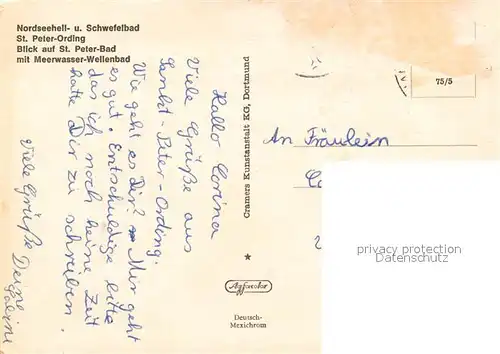 Nordseeheil- u. Schwefelbad
St. Peter-Ording
Blick auf St. Peter-Bad
mit Meerwasser-Wellenbad
Hallo Corina
Viele Grüße aus
Sankt Peter-Ording.
Wie geht es Dir? Mir geht
es gut. Entschuldige bitte
das ich noch keine Zeit
hatte Dir zu schreiben.
Viele Grüße Deine
Sabine
Cramers Kunstanstalt KG, Dortmund
Agfacolor
Deutsch-
Mexichrom
75/5
An Fräulein
privacy protection
Datenschutz